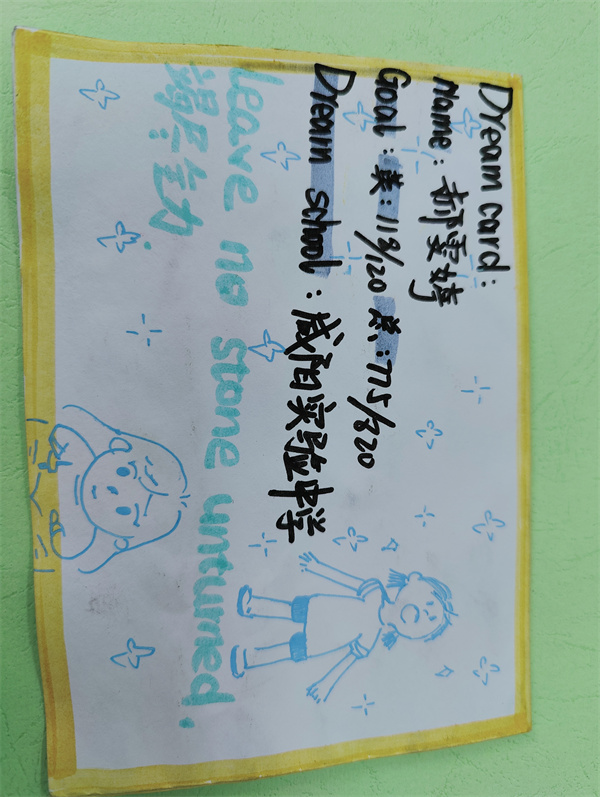 Dream card:
Name: 郝雯婷
Goal: 英: 119/120 总: 775/820
Dream school: 咸阳实验中学
Leave no stone unturned.
竭尽全力.